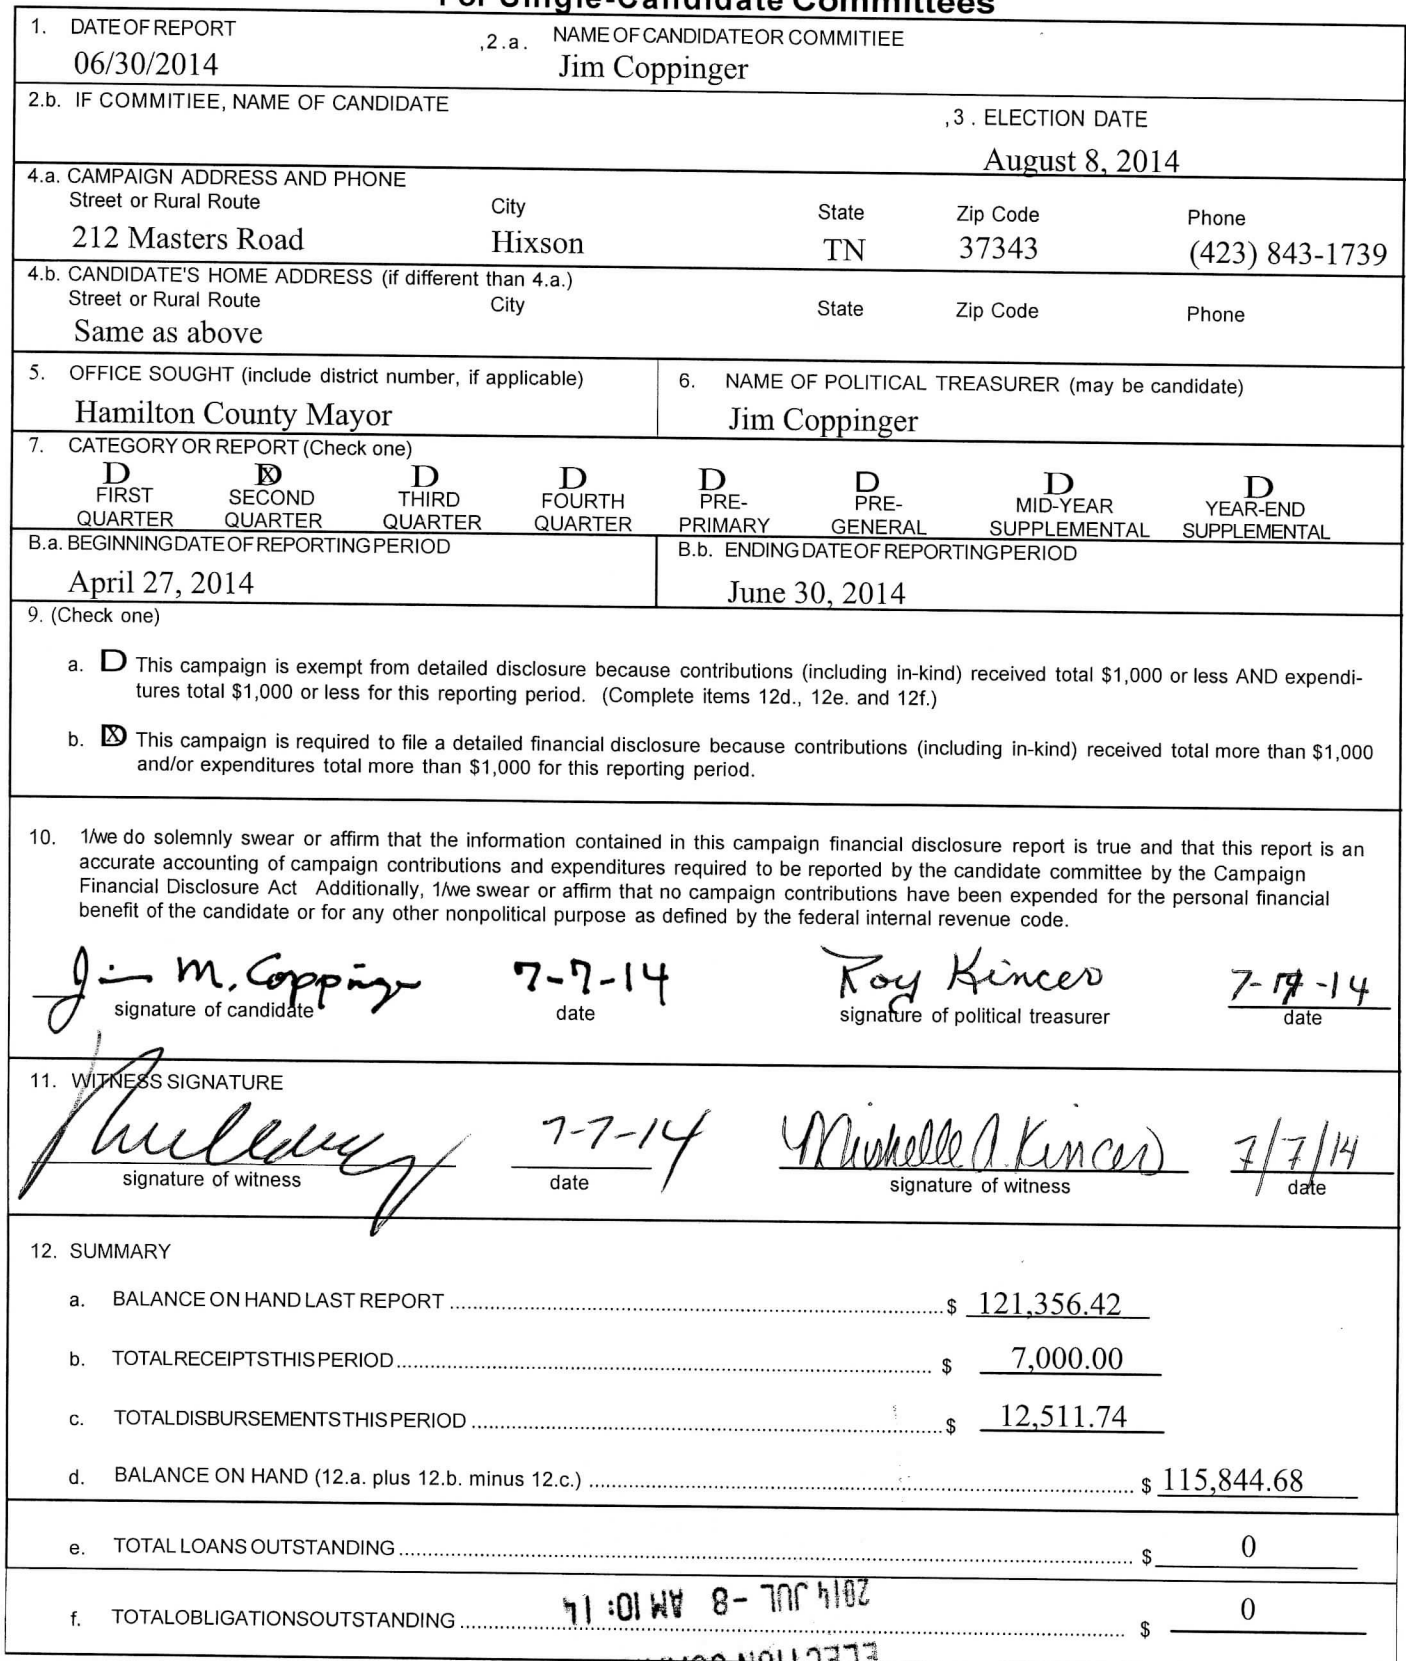 For Single-Candidate Committees
1. DATE OF REPORT
06/30/2014
,2.a. NAME OF CANDIDATE OR COMMITIEE
Jim Coppinger
2.b. IF COMMITIEE, NAME OF CANDIDATE
,3 . ELECTION DATE
August 8, 2014
4.a. CAMPAIGN ADDRESS AND PHONE
Street or Rural Route City State Zip Code Phone
212 Masters Road Hixson TN 37343 (423) 843-1739
4.b. CANDIDATE'S HOME ADDRESS (if different than 4.a.)
Street or Rural Route City State Zip Code Phone
Same as above
5. OFFICE SOUGHT (include district number, if applicable)
Hamilton County Mayor
6. NAME OF POLITICAL TREASURER (may be candidate)
Jim Coppinger
7. CATEGORY OR REPORT (Check one)
D X D D D D D D
FIRST SECOND THIRD FOURTH PRE- PRE- MID-YEAR YEAR-END
QUARTER QUARTER QUARTER QUARTER PRIMARY GENERAL SUPPLEMENTAL SUPPLEMENTAL
B.a. BEGINNING DATE OF REPORTING PERIOD
April 27, 2014
B.b. ENDING DATE OF REPORTING PERIOD
June 30, 2014
9. (Check one)
a. D This campaign is exempt from detailed disclosure because contributions (including in-kind) received total $1,000 or less AND expendi-
tures total $1,000 or less for this reporting period. (Complete items 12d., 12e. and 12f.)
b. X This campaign is required to file a detailed financial disclosure because contributions (including in-kind) received total more than $1,000
and/or expenditures total more than $1,000 for this reporting period.
10. 1/we do solemnly swear or affirm that the information contained in this campaign financial disclosure report is true and that this report is an
accurate accounting of campaign contributions and expenditures required to be reported by the candidate committee by the Campaign
Financial Disclosure Act Additionally, 1/we swear or affirm that no campaign contributions have been expended for the personal financial
benefit of the candidate or for any other nonpolitical purpose as defined by the federal internal revenue code.
Jim M. Coppinger 7-7-14 Roy Kincer 7-7-14
signature of candidate date signature of political treasurer date
11. WITNESS SIGNATURE
7-7-14 Michelle A. Kincer 7/7/14
signature of witness date signature of witness date
12. SUMMARY
a. BALANCE ON HAND LAST REPORT $ 121,356.42
b. TOTAL RECEIPTS THIS PERIOD $ 7,000.00
c. TOTAL DISBURSEMENTS THIS PERIOD $ 12,511.74
d. BALANCE ON HAND (12.a. plus 12.b. minus 12.c.) $ 115,844.68
e. TOTAL LOANS OUTSTANDING $ 0
2014 JUL -8 AM 10: 14
f. TOTAL OBLIGATIONS OUTSTANDING $ 0
ELECTION